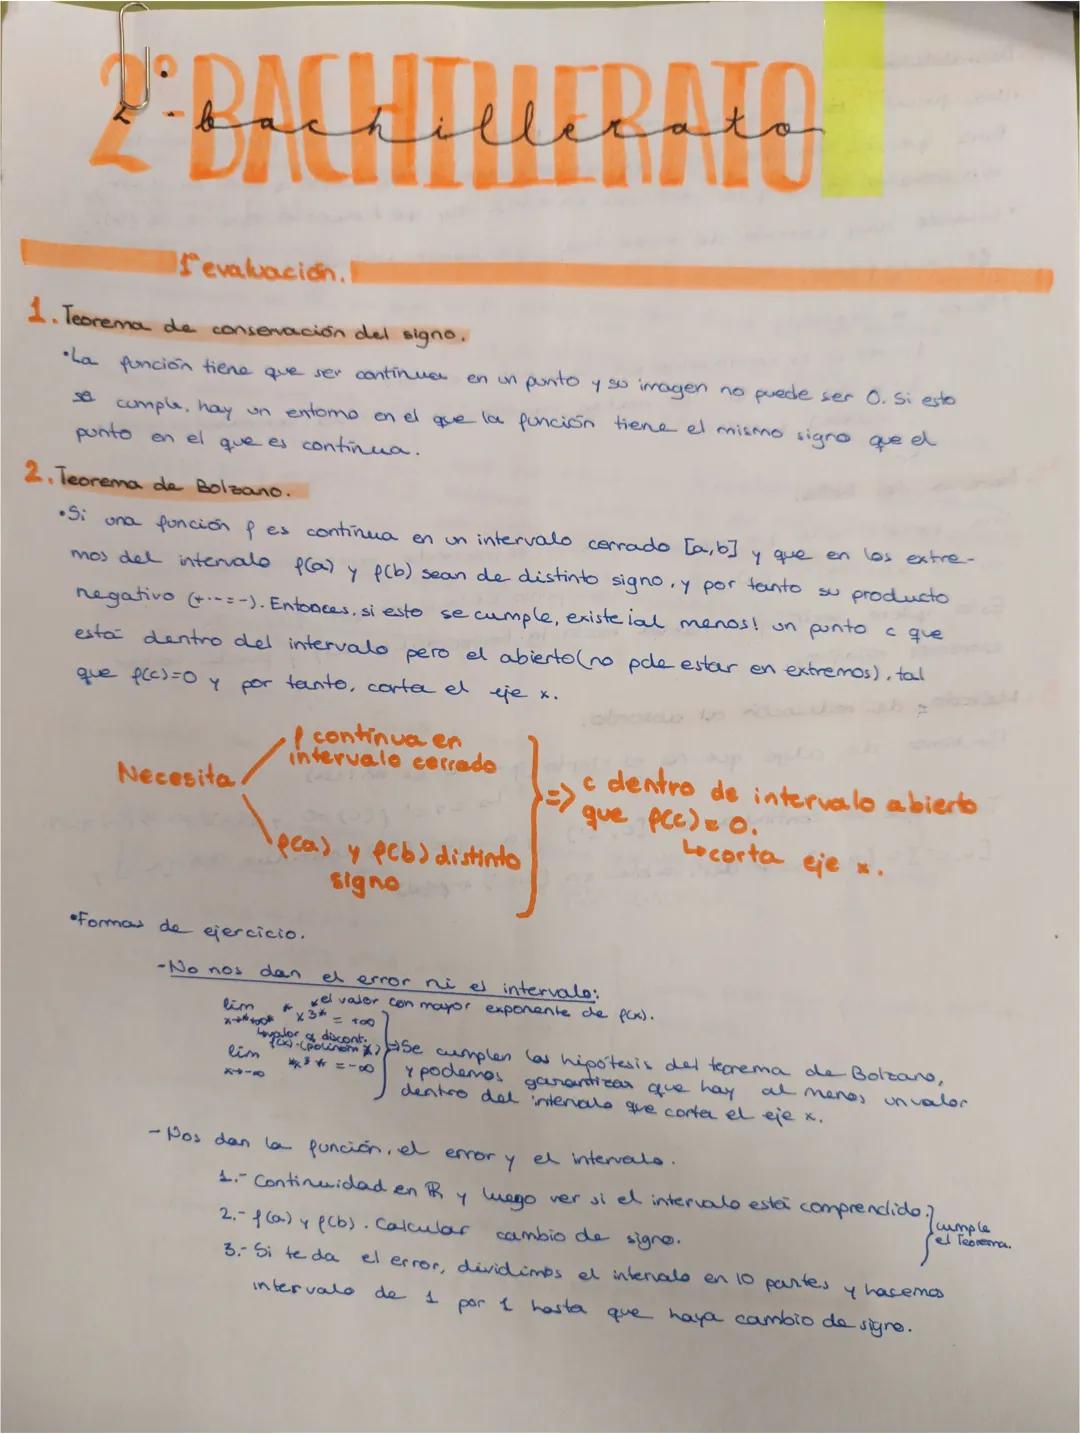 2º BACHILLERATO
2º bachillerato
1ª evaluación.
1. Teorema de conservación del signo.
•La función tiene que ser contínua en un punto y su imagen no puede ser 0. Si esto
se cumple, hay un entorno en el que la función tiene el mismo signo que el
punto en el que es contínua.
2. Teorema de Bolzano.
•Si una función f es contínua en un intervalo cerrado [a,b] y que en los extre-
mos del intervalo f(a) y f(b) sean de distinto signo, y por tanto su producto
negativo (+·-=-). Entonces, si esto se cumple, existe ¡al menos! un punto c que
está dentro del intervalo pero el abierto (no pde estar en extremos), tal
que f(c)=0 y por tanto, corta el eje x.
Necesita
f contínua en
intervalo cerrado
f(a) y f(b) distinto
signo
=> c dentro de intervalo abierto
que f(c)=0.
↳corta eje x.
•Formas de ejercicio.
-No nos dan el error ni el intervalo:
el valor con mayor exponente de f(x).
lim x→+∞ x³* = +∞
↳valor q discont.
f(x)=(polinom)
lim x→-∞ *x³* = -∞
=>Se cumplen las hipótesis del teorema de Bolzano,
y podemos garantizar que hay al menos un valor
dentro del intervalo que corta el eje x.
-Nos dan la función, el error y el intervalo.
1.- Continuidad en ℝ y luego ver si el intervalo está comprendido.
2.- f(a) y f(b). Calcular cambio de signo.
cumple
el Teorema.
3.- Si te da el error, dividimos el intervalo en 10 partes y hacemos
intervalo de 1 por 1 hasta que haya cambio de signo.